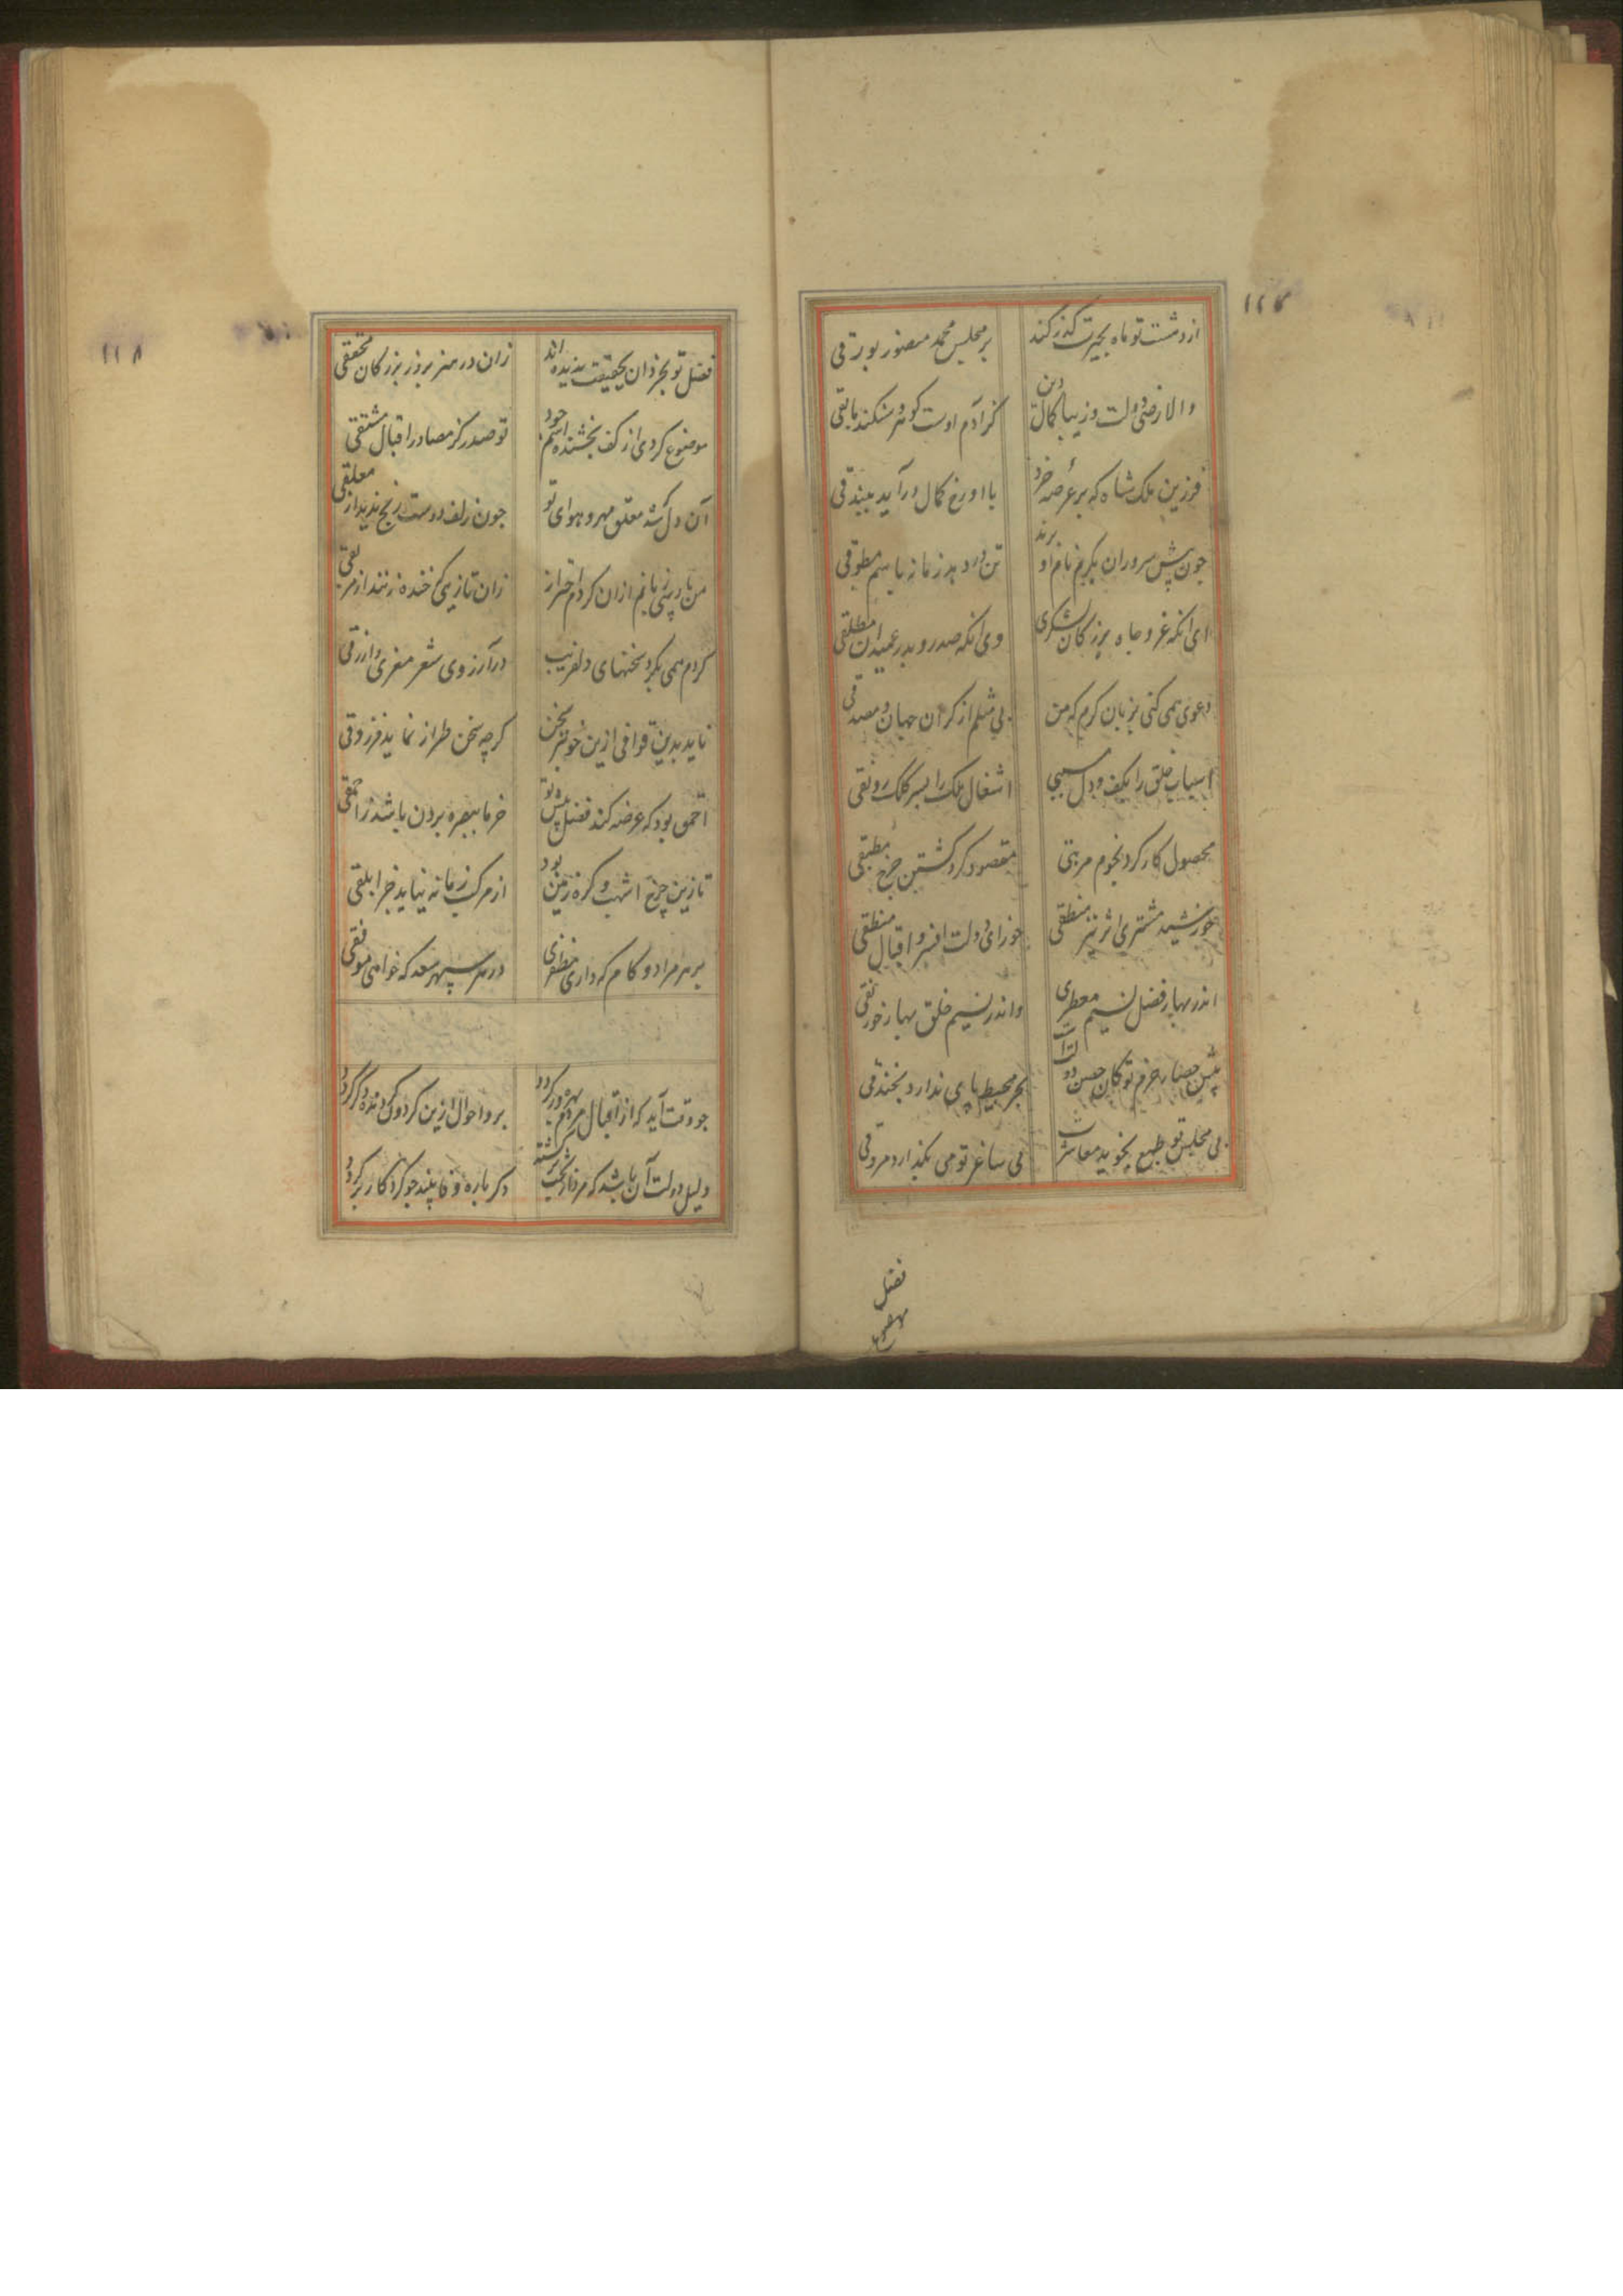 از دست تو ماه بحیرت گذر کند
بر مجلس محمد منصور بورقی
والا رضی دولت و زیبا کمال دین
کز آدم اوست گوهر و شکند مابقی
فرزین ملک شاه که بر عرصه خرد
با او رخ کمال درآید ببیذقی
چون پیش سروران کریم نام او برند
تن در دهد زمانه باسم مطوقی
ای آنکه عز و جاه بزرگان لشکری
وی آنکه صدر و بدر عمیدان مطلقی
دعوی همی کنی بزبان کرم که من
بی مثلم از کران جهان و مصدقی
اسباب خلق را بکف و دل مسببی
اشغال ملک را بسر کلک رونقی
محصول کارکرد نجوم مرتبی
مقصود گرد گشتن چرخ مطبقی
خورشید مشتری اثر تیر منطقی
جوزای دولت افسر و اقبال منطقی
اندر بهار فضل نسیم معطری
واندر نسیم خلق بهار خورنقی
پیش حصار حزم تو کان حصن دولت است
بحر محیط پای ندارد بخندقی
بی مجلس تو طبع نجوید معاشرت
بی ساغر تو می نگذارد مروقی
فضل
۱۱۸
فضل تو بخردان بحقیقت بدیده اند
زان در هنر بروز بزرگان محققی
موضوع کردی از کف بخشنده اسم جود
تو صدر کز مصادر اقبال مشتقی
آن دل که شد معلق مهر و هوای تو
چون زلف دوست رنج ندید از معلقی
من پارسی زبانم ازان کردم احتراز
زان تازیی که خنده زنند از مر بقی
کردم همی بگرد سخنهای دلفریب
در آرزوی شعر معزی و ازرقی
ناید بدین قوافی ازین خوبتر سخن
گرچه سخن طراز نماید فرزدقی
احمق بود که عرضه کند فضل پیش تو
خرما ببصره بردن باشد ز احمقی
تا زین چرخ اشهب و کره زمین بود
از مرکب زمانه نیاید خر ابلقی
بر هر مراد و کام که داری مظفری
در هر سپهر سعد که خواهی موفقی
چو وقت آید که از اقبال مردم بهره ور گردد
برو احوال ازین گردون گردنده دگر گردد
دلیل دولت آن باشد که مردار بخت برگشته
دگر باره وفا بیند چو گرد کار برگردد